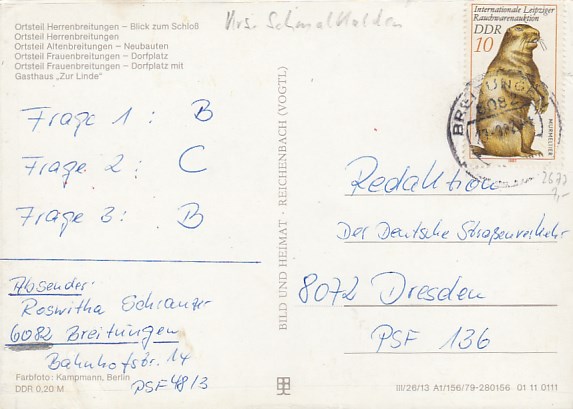 Ortsteil Herrenbreitungen – Blick zum Schloß
Ortsteil Herrenbreitungen
Ortsteil Altenbreitungen – Neubauten
Ortsteil Frauenbreitungen – Dorfplatz
Ortsteil Frauenbreitungen – Dorfplatz mit
Gasthaus „Zur Linde"
Krs. Schmalkalden
Internationale Leipziger
Rauchwarenauktion
DDR
10
MURMELTIER
BREITUNGEN
6082
Frage 1: B
Frage 2: C
Frage 3: B
Absender:
Roswitha Schranger
6082 Breitungen
Bahnhofstr. 14
PSF 48/3
Farbfoto: Kampmann, Berlin
DDR 0,20 M
BILD UND HEIMAT · REICHENBACH (VOGTL)
2677
1,-
Redaktion
Der Deutsche Straßenverkehr
8072 Dresden
PSF 136
III/26/13 A1/156/79-280156 01 11 0111